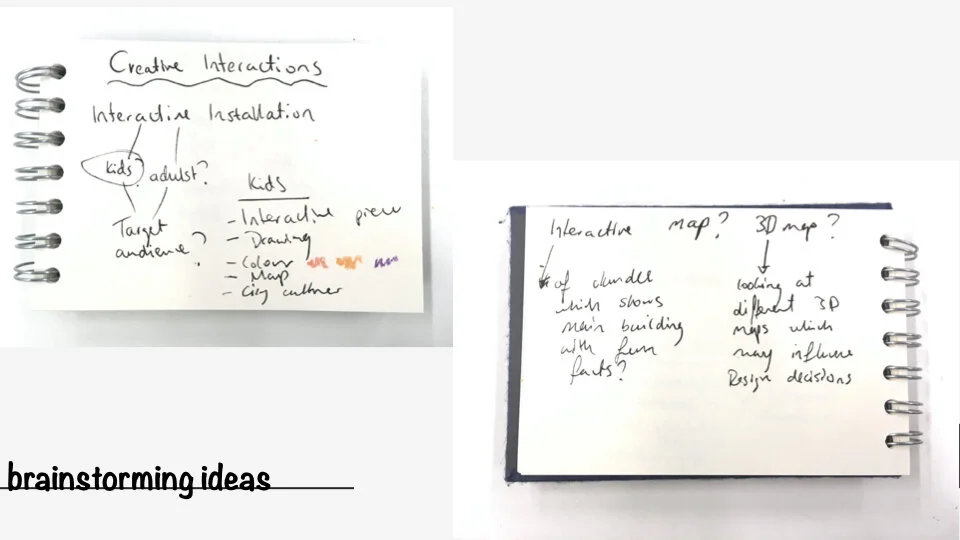 Creative Interactions
Interactive Installation
kids? adulst?
Target
audience?
Kids
- Interactive piece
- Drawing
- Colour
- Map
- City culture
Interactive map? 3D map?
of dundee
which shows
main building
with fun
facts?
looking at
different 3D
maps which
may influence
Design decisions
brainstorming ideas